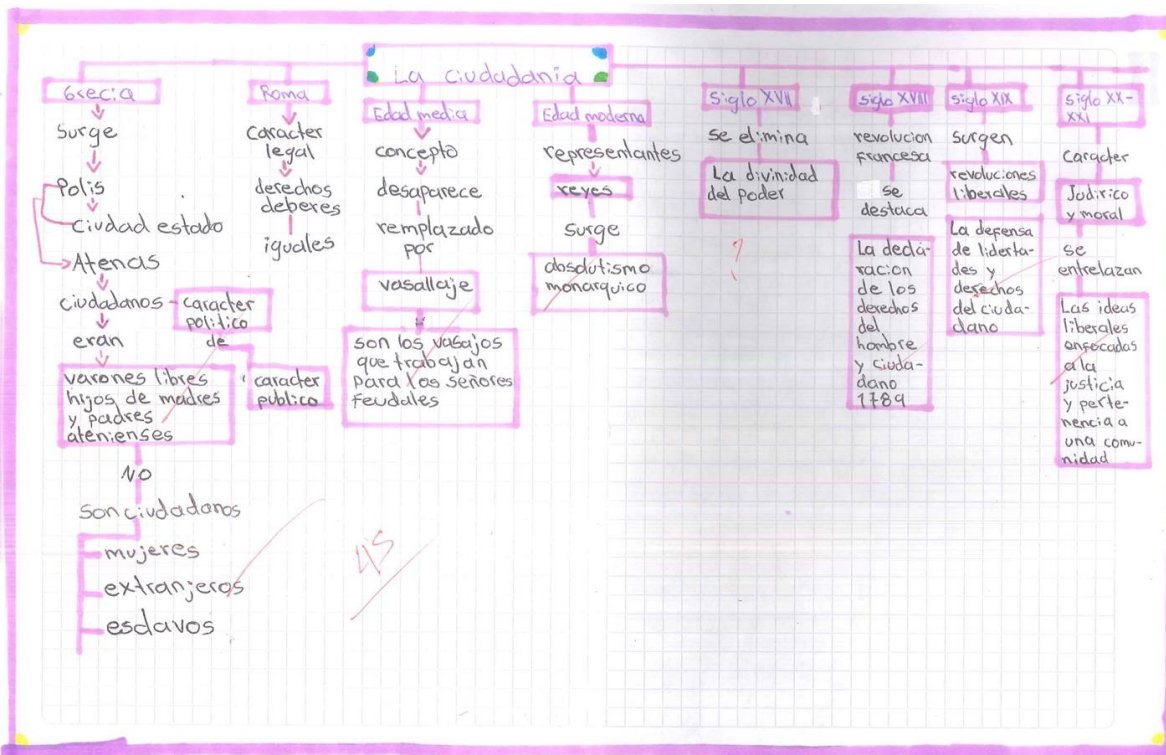 La Ciudadania
Grecia
Surge
Polis
Ciudad estado
Atenas
ciudadanos
caracter
politico
de
caracter
publico
eran
varones libres
hijos de madres
y padres
atenienses
NO
son ciudadanos
mujeres
extranjeros
esclavos
Roma
Caracter
legal
derechos
deberes
iguales
Edad media
concepto
desaparece
remplazado
por
vasallaje
son los vasajos
que trabajan
para los señores
feudales
Edad moderna
representantes
reyes
Surge
absolutismo
monarquico
Siglo XVII
se elimina
La divinidad
del poder
?
siglo XVIII
revolucion
francesa
se
destaca
La decla-
racion
de los
derechos
del
hombre
y ciuda-
dano
1789
siglo XIX
surgen
revoluciones
liberales
La defensa
de liderta-
des y
derechos
del ciuda-
dano
siglo XX-
XXI
Caracter
Judirico
y moral
se
entrelazan
Las ideas
liberales
enfocadas
a la
justicia
y perte-
nencia a
una comu-
nidad
45